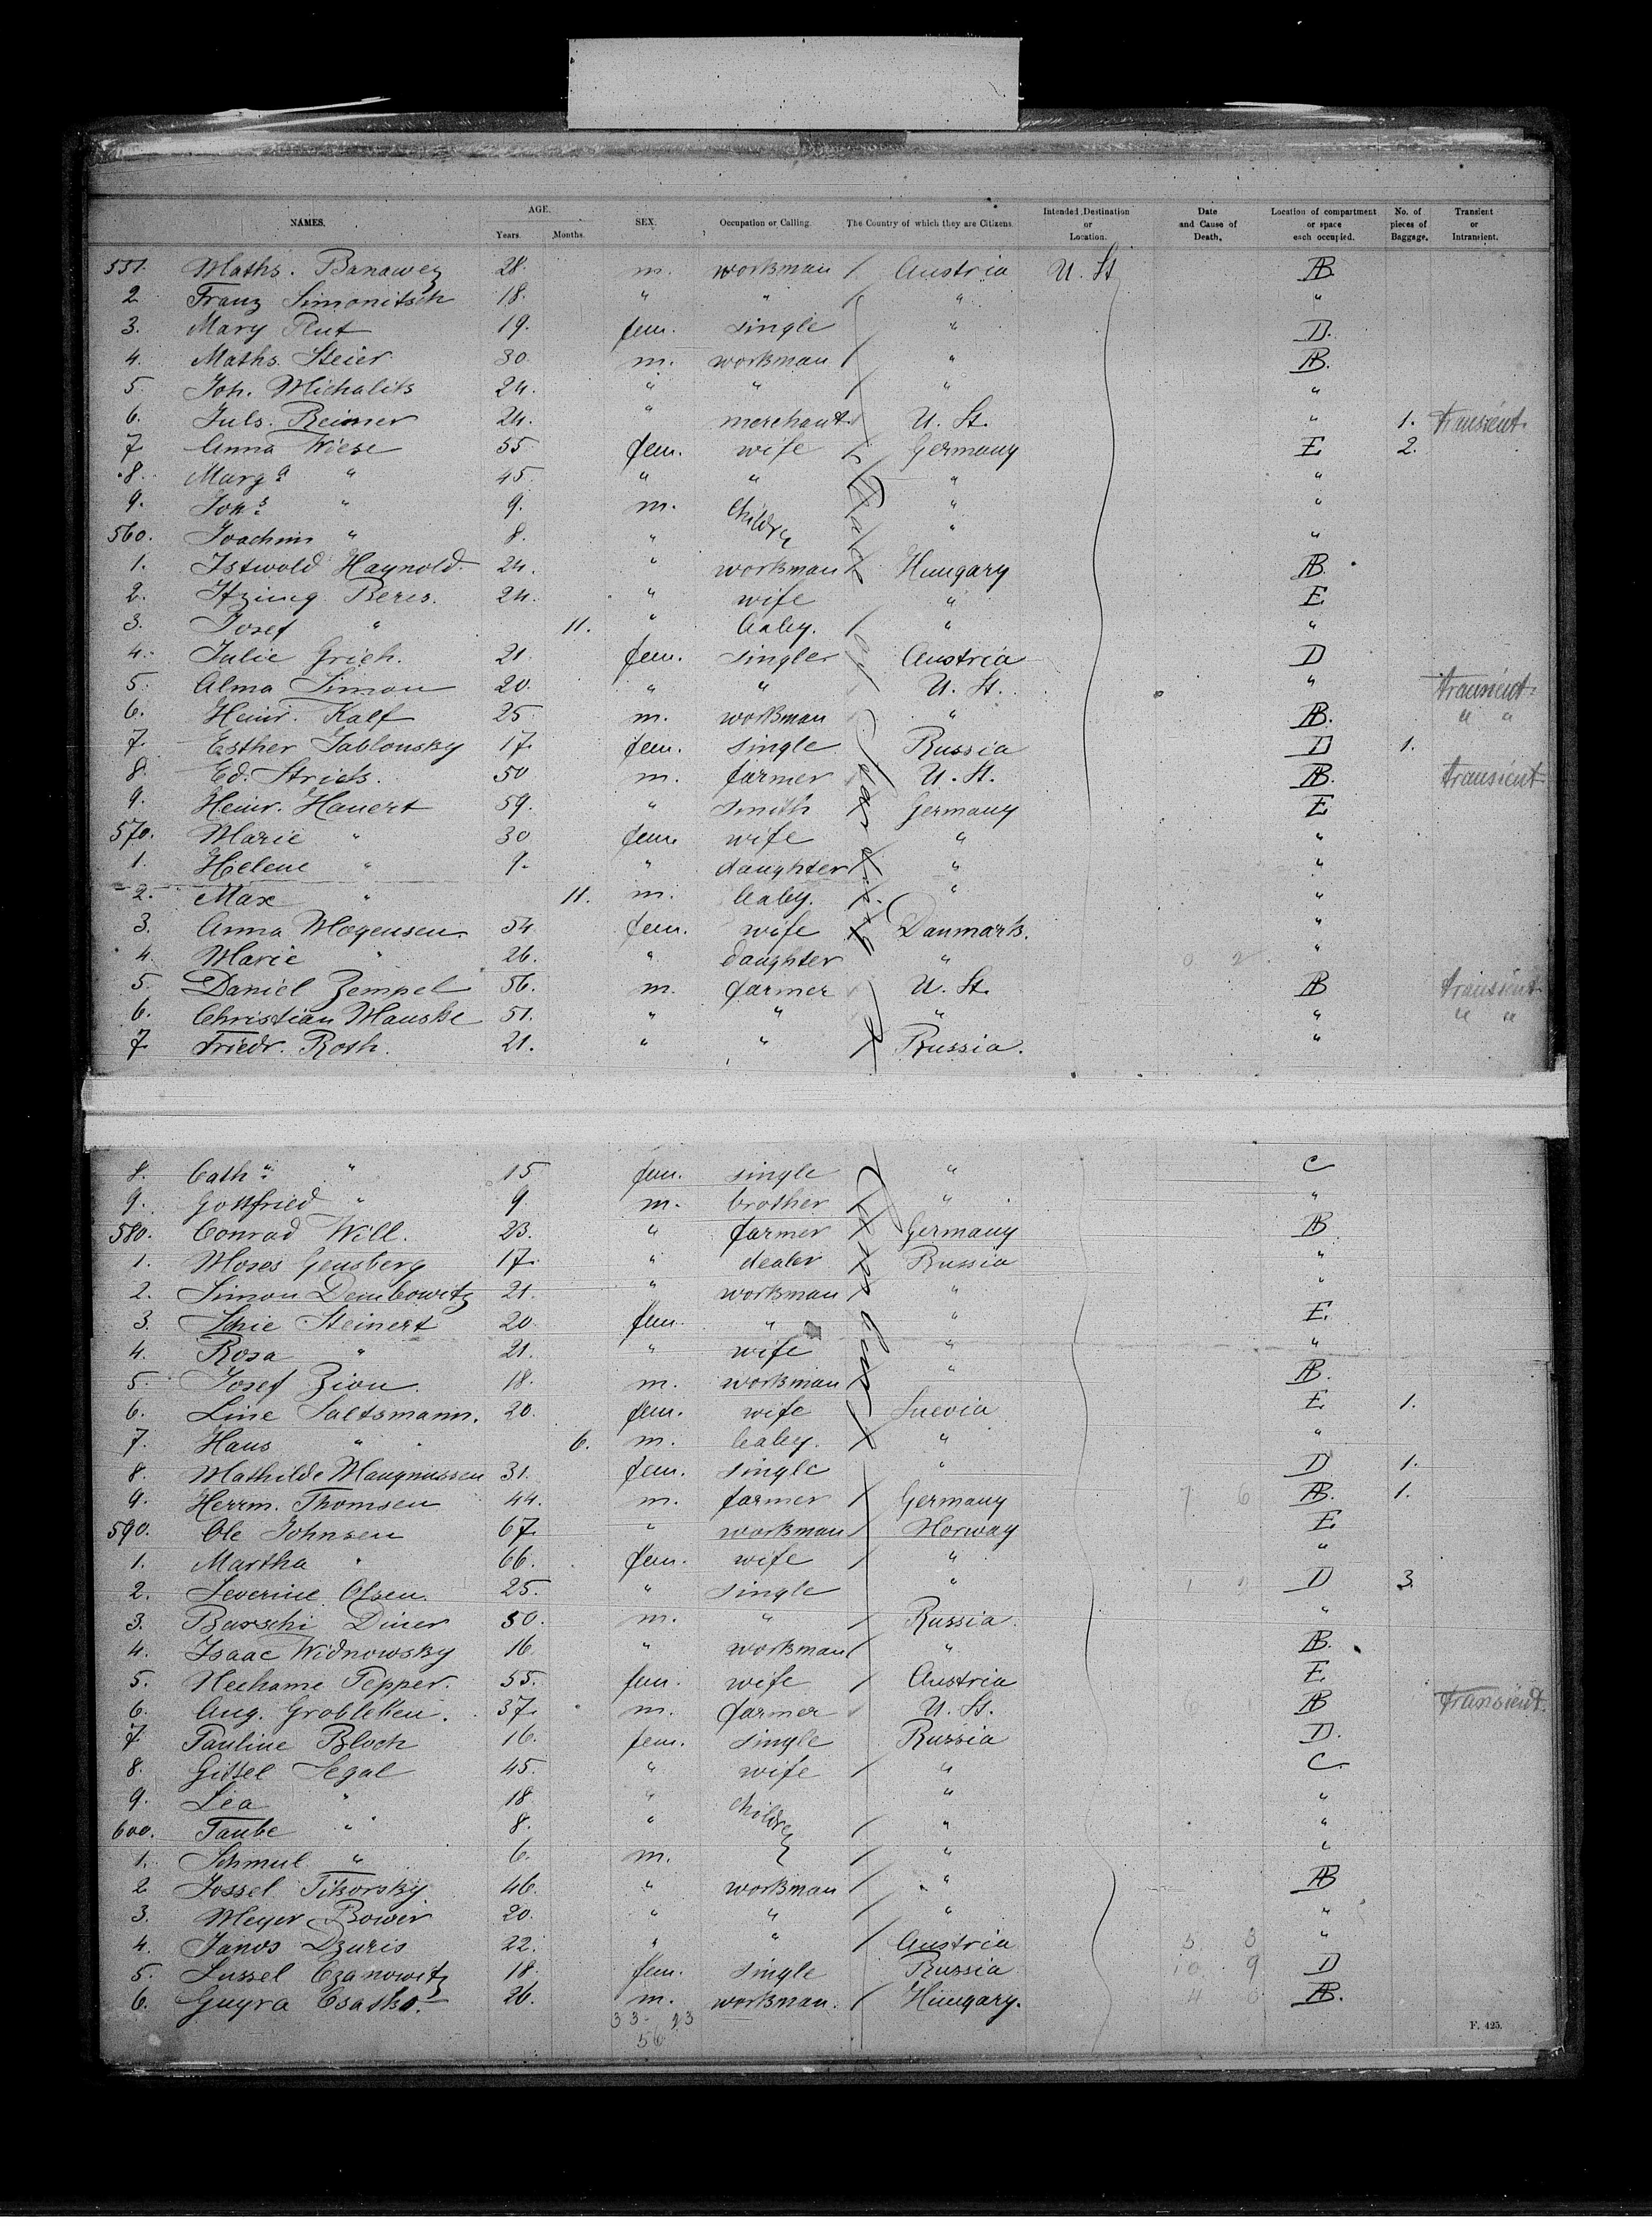 NAMES. AGE. Years. Months. SEX. Occupation or Calling. The Country of which they are Citizens. Intended Destination or Location. Date and Cause of Death. Location of compartment or space each occupied. No. of pieces of Baggage. Transient or Intransient.
551. Maths. Banawez 28. m. workman / Austria U. St AB.
2 Franz Simonitsch 18. " " / " "
3. Mary Plut 19. fem. single " D.
4. Maths. Steier 30. m. workman / " AB.
5. Joh. Michalik 24. " " / " "
6. Juls. Reimer 24. " merchant U. St. " 1. transient.
7 Anna Wiese 55 fem. wife / Germany E 2.
8. Marga " 45. " " " "
9. Johs " 9. m. children " "
560. Joachim " 8. " " "
1. Istwold Haynold 24. " workman Hungary AB.
2. Itzing Beres. 24. " wife " E
3. Josef " 11. " baby. / " "
4. Julie Grich. 21. fem. single Austria D
5. Alma Simon 20. " " U. St. " transient.
6. Heinr. Kalf 25 m. workman " AB. " "
7. Esther Jablonsky 17. fem. single Russia D 1.
8. Ed. Strick. 50 m. farmer U. St. AB. transient
9. Heinr. Hauert 59. " smith / Germany E
570. Marie " 30 fem. wife " "
1. Helene " 9. " daughter " "
2. Max " 11. m. baby. / " "
3. Anna Mogensen. 54 fem. wife Danmark. "
4. Marie " 26. " daughter " "
5. Daniel Zempel 56. m. farmer U. St. AB transient
6. Christian Manske 51. " " " " " "
7 Friedr. Roth. 21. " " / Russia. "
8. Cath. " 15 fem. single " C
9. Gottfried " 9. m. brother / " "
580. Conrad Will. 23. " farmer Germany AB
1. Moses Gensberg 17. " dealer Russia "
2. Simon Dembowitz 21. " workman / " "
3. Schie Steinert 20. fem. " " E.
4. Rosa " 21. " wife " "
5. Josef Zion. 18. m. workman " AB.
6. Line Saltsmann. 20. fem. wife Suevia E 1.
7. Hans " 6. m. baby. " "
8. Mathilde Maugnussen 31. fem. single " D 1.
9. Herrm. Thomsen 44. m. farmer / Germany 7 6 AB. 1.
590. Ole Johnsen 67. " workman / Norway E
1. Martha " 66. fem. wife / " "
2. Severine Olsen. 25. " single " D 3.
3. Barschi Diner 50. m. " / Russia. "
4. Isaac Widnowsky 16 " workman / " AB.
5. Nechame Pepper. 55. fem. wife / Austria E
6. Aug. Grobleben. 37. m. farmer U. St. AB transient.
7. Pauline Bloch 16. fem. single Russia D.
8. Gittel Segal 45. " wife / " C
9. Lea " 18 " children " "
600. Taube " 8. " / " "
1. Schmul " 6. m. / " "
2 Jossel Tikorsky 46. " workman / " AB
3. Meyer Bower 20. " " / " "
4. Janos Dzuris 22. " " / Austria 5 3 "
5. Jussel Czanowitz 18. fem. single Russia 10 9 D
6. Guyra Csatko. 26. m. workman. / Hungary. 4 AB.
33 23
56
F. 425.